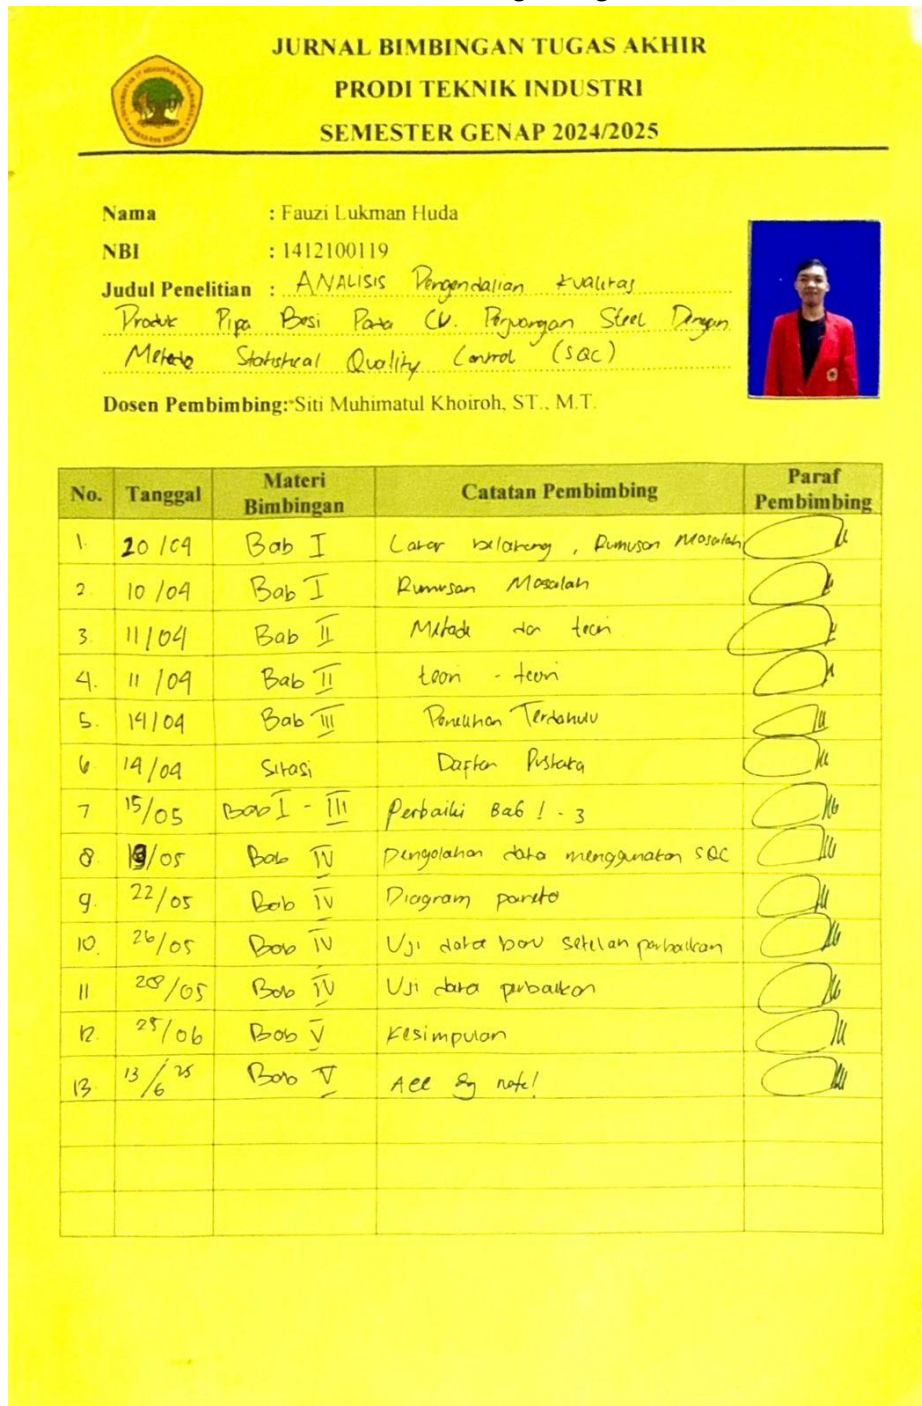 JURNAL BIMBINGAN TUGAS AKHIR
PRODI TEKNIK INDUSTRI
SEMESTER GENAP 2024/2025
Nama : Fauzi Lukman Huda
NBI : 1412100119
Judul Penelitian : ANALISIS Pengendalian Kualitas
Produk Pipa Besi Pada CV. Perjuangan Steel Dengan
Metode Statistical Quality Control (SQC)
Dosen Pembimbing: Siti Muhimatul Khoiroh, ST., M.T.
No. Tanggal Materi Bimbingan Catatan Pembimbing Paraf Pembimbing
1. 20/04 Bab I Latar belakang, Rumusan Masalah
2. 10/04 Bab I Rumusan Masalah
3. 11/04 Bab II Metode dan teori
4. 11/04 Bab II teori - teori
5. 14/04 Bab III Penelitian Terdahulu
6 14/04 Sitasi Daftar Pustaka
7 15/05 Bab I - III Perbaiki Bab 1 - 3
8. /05 Bab IV Pengolahan data menggunakan SQC
9. 22/05 Bab IV Diagram pareto
10. 26/05 Bab IV Uji data baru setelah perbaikan
11 28/05 Bab IV Uji data perbaikan
12. 25/06 Bab V Kesimpulan
13. 13/6 25 Bab V Acc note!